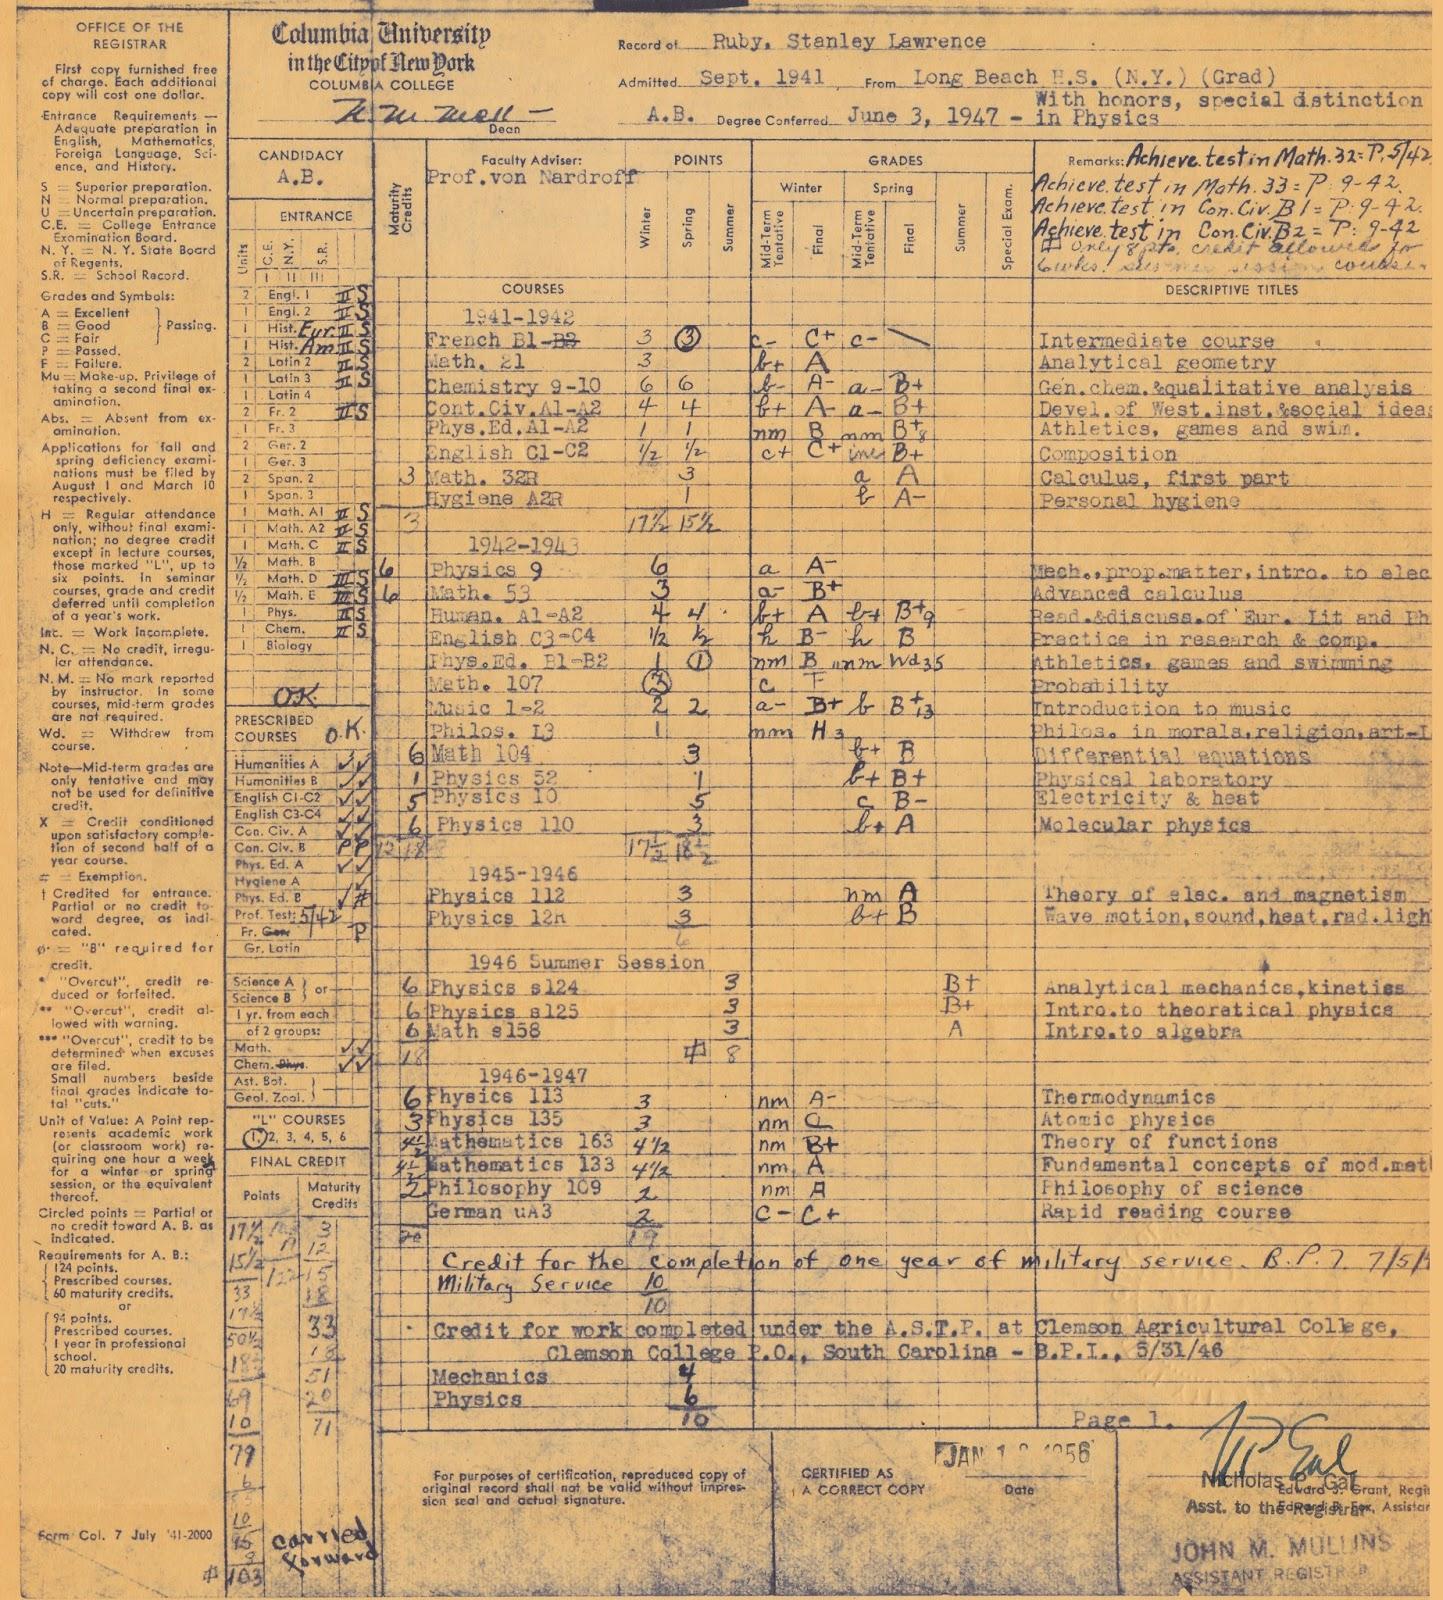 OFFICE OF THE
REGISTRAR
First copy furnished free
of charge. Each additional
copy will cost one dollar.
Entrance Requirements —
Adequate preparation in
English, Mathematics,
Foreign Language, Sci-
ence, and History.
S = Superior preparation.
N = Normal preparation.
U = Uncertain preparation.
C.E. = College Entrance
Examination Board.
N. Y. = N. Y. State Board
of Regents.
S.R. = School Record.
Grades and Symbols:
A = Excellent
B = Good
C = Fair
Passing.
P = Passed.
F = Failure.
Mu = Make-up. Privilege of
taking a second final ex-
amination.
Abs. = Absent from ex-
amination.
Applications for fall and
spring deficiency exami-
nations must be filed by
August 1 and March 10
respectively.
H = Regular attendance
only, without final exami-
nation; no degree credit
except in lecture courses,
those marked "L", up to
six points. In seminar
courses, grade and credit
deferred until completion
of a year's work.
Inc. = Work incomplete.
N. C. = No credit, irregu-
lar attendance.
N. M. = No mark reported
by instructor. In some
courses, mid-term grades
are not required.
Wd. = Withdrew from
course.
Note—Mid-term grades are
only tentative and may
not be used for definitive
credit.
X = Credit conditioned
upon satisfactory comple-
tion of second half of a
year course.
# = Exemption.
† Credited for entrance.
Partial or no credit to-
ward degree, as indi-
cated.
ø = "B" required for
credit.
* "Overcut", credit re-
duced or forfeited.
** "Overcut", credit al-
lowed with warning.
*** "Overcut", credit to be
determined when excuses
are filed.
Small numbers beside
final grades indicate to-
tal "cuts."
Unit of Value: A Point rep-
resents academic work
(or classroom work) re-
quiring one hour a week
for a winter or spring
session, or the equivalent
thereof.
Circled points = Partial or
no credit toward A. B. as
indicated.
Requirements for A. B.:
124 points.
Prescribed courses.
60 maturity credits.
or
94 points.
Prescribed courses.
1 year in professional
school.
20 maturity credits.
Form Col. 7 July '41-2000
Columbia University
in the City of New York
COLUMBIA COLLEGE
Dean
Record of Ruby, Stanley Lawrence
Admitted Sept. 1941 From Long Beach H.S. (N.Y.) (Grad)
A.B. Degree Conferred June 3, 1947 - With honors, special distinction
in Physics
CANDIDACY
A.B.
ENTRANCE
Units C.E. N.Y. S.R.
I II III
2 Engl. 1 II S
1 Engl. 2 II S
1 Hist. Eur II S
1 Hist. Am II S
2 Latin 2 II S
1 Latin 3 II S
1 Latin 4
2 Fr. 2 II S
1 Fr. 3
2 Ger. 2
1 Ger. 3
2 Span. 2
1 Span. 3
1 Math. A1 II S
1 Math. A2 II S
1 Math. C II S
½ Math. B
½ Math. D III S
½ Math. E III S
1 Phys. II S
1 Chem. II S
1 Biology
OK
PRESCRIBED
COURSES O.K.
Humanities A ✓✓
Humanities B ✓✓
English C1-C2 ✓✓
English C3-C4 ✓✓
Con. Civ. A ✓✓
Con. Civ. B P P
Phys. Ed. A ✓✓
Hygiene A ✓
Phys. Ed. B ✓#
Prof. Test: 5/42
Fr. Ger. P
Gr. Latin
Science A
Science B
or
1 yr. from each
of 2 groups:
Math. ✓✓
Chem. Phys. ✓✓
Ast. Bot.
Geol. Zool.
"L" COURSES
1, 2, 3, 4, 5, 6
FINAL CREDIT
Points Maturity
Credits
17½ 3
15½ 12
33 18
17½ 33
50½ 18
18½ 51
69 20
10 71
79
6
10
95
103
carried
forward
Maturity
Credits
Faculty Adviser:
Prof. von Nardroff
POINTS
Winter Spring Summer
GRADES
Winter Spring
Mid-Term
Tentative Final Mid-Term
Tentative Final Summer Special Exam.
Remarks: Achieve. test in Math. 32 = P. 5/42
Achieve. test in Math. 33 = P. 9-42.
Achieve. test in Con. Civ. B1 = P. 9-42.
Achieve. test in Con. Civ. B2 = P. 9-42
# Only 8 pts. credit allowed for
6 wks. summer session courses.
COURSES
DESCRIPTIVE TITLES
1941-1942
French B1-B2 3 3 c- C+ c- Intermediate course
Math. 21 3 b+ A Analytical geometry
Chemistry 9-10 6 6 b- A- a- B+ Gen.chem.&qualitative analysis
Cont.Civ.A1-A2 4 4 b+ A- a- B+ Devel.of West.inst.&social ideas
Phys.Ed.A1-A2 1 1 nm B nm B+8 Athletics, games and swim.
English C1-C2 ½ ½ c+ C+ inc B+ Composition
3 Math. 32R 3 a A Calculus, first part
Hygiene A2R 1 b A- Personal hygiene
3 17½ 15½
1942-1943
6 Physics 9 6 a A- Mech.,prop.matter,intro. to elec
6 Math. 53 3 a- B+ Advanced calculus
Human. A1-A2 4 4 b+ A b+ B+9 Read.&discuss.of Eur. Lit and Ph
English C3-C4 ½ ½ h B- h B Practice in research & comp.
Phys.Ed. B1-B2 1 1 nm B nm Wd35 Athletics, games and swimming
Math. 107 3 c F Probability
Music 1-2 2 2 a- B+ b B+13 Introduction to music
Philos. L3 1 nm H3 Philos. in morals,religion,art-L
6 Math 104 3 b+ B Differential equations
1 Physics 52 1 b+ B+ Physical laboratory
5 Physics 10 5 c B- Electricity & heat
6 Physics 110 3 b+ A Molecular physics
12 18 17½ 18½
1945-1946
Physics 112 3 nm A Theory of elec. and magnetism
Physics 12R 3 b+ B Wave motion,sound,heat,rad.ligh
6
1946 Summer Session
6 Physics s124 3 B+ Analytical mechanics,kinetics
6 Physics s125 3 B+ Intro.to theoretical physics
6 Math s158 3 A Intro.to algebra
18 # 8
1946-1947
6 Physics 113 3 nm A- Thermodynamics
3 Physics 135 3 nm C Atomic physics
4½ Mathematics 163 4½ nm B+ Theory of functions
4½ Mathematics 133 4½ nm A Fundamental concepts of mod.mat
2 Philosophy 109 2 nm A Philosophy of science
German uA3 2 c- C+ Rapid reading course
20 19
Credit for the completion of one year of military service. B.P.I. 7/5/
Military Service 10
10
Credit for work completed under the A.S.T.P. at Clemson Agricultural College,
Clemson College P.O., South Carolina - B.P.I., 5/31/46
Mechanics 4
Physics 6
10
Page 1.
For purposes of certification, reproduced copy of
original record shall not be valid without impres-
sion seal and actual signature.
CERTIFIED AS
A CORRECT COPY
JAN 1 1956
Date
Nicholas P. Gal
Asst. to the Registrar
Edward J. Grant, Regi
Edward B. Fox, Assistan
JOHN M. MULLINS
ASSISTANT REGISTRAR